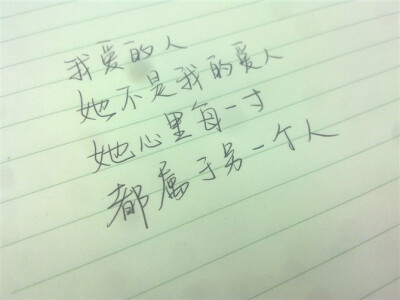 我爱的人
她不是我的爱人
她心里每一寸
都属于另一个人